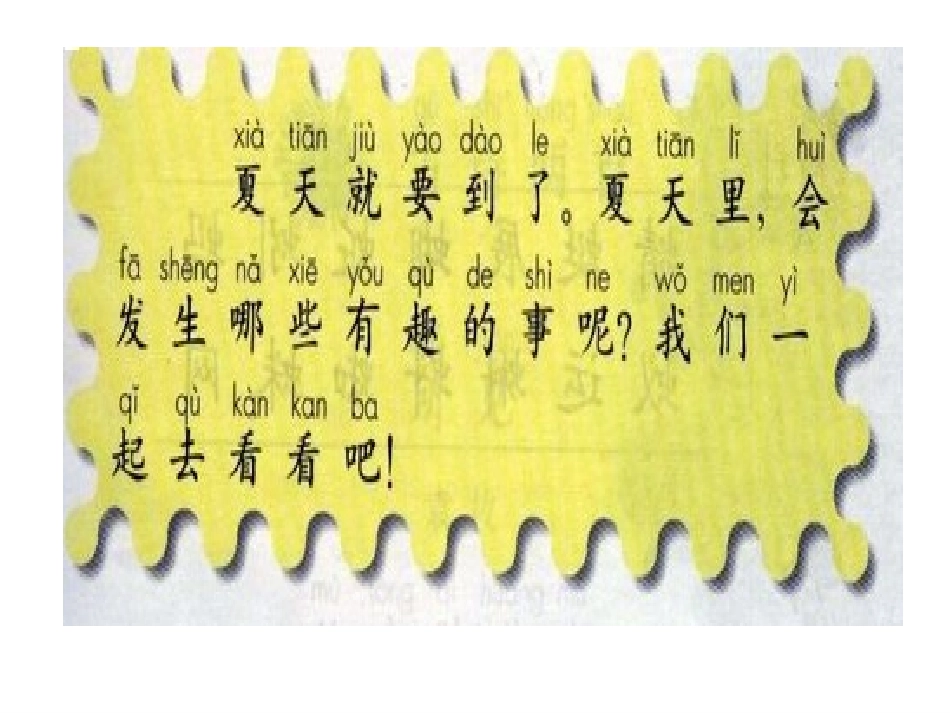 xià tiān jiù yào dào le xià tiān lǐ huì
夏天就要到了。夏天里，会
fā shēng nǎ xiē yǒu qù de shì ne wǒ men yì
发生哪些有趣的事呢？我们一
qǐ qù kàn kan ba
起去看看吧！